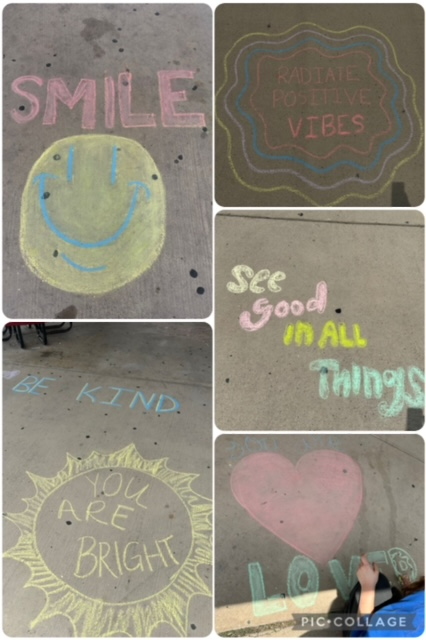 SMILE
RADIATE
POSITIVE
VIBES
See
good
in ALL
Things
BE KIND
YOU
ARE
BRIGHT
LOVED
PIC•COLLAGE